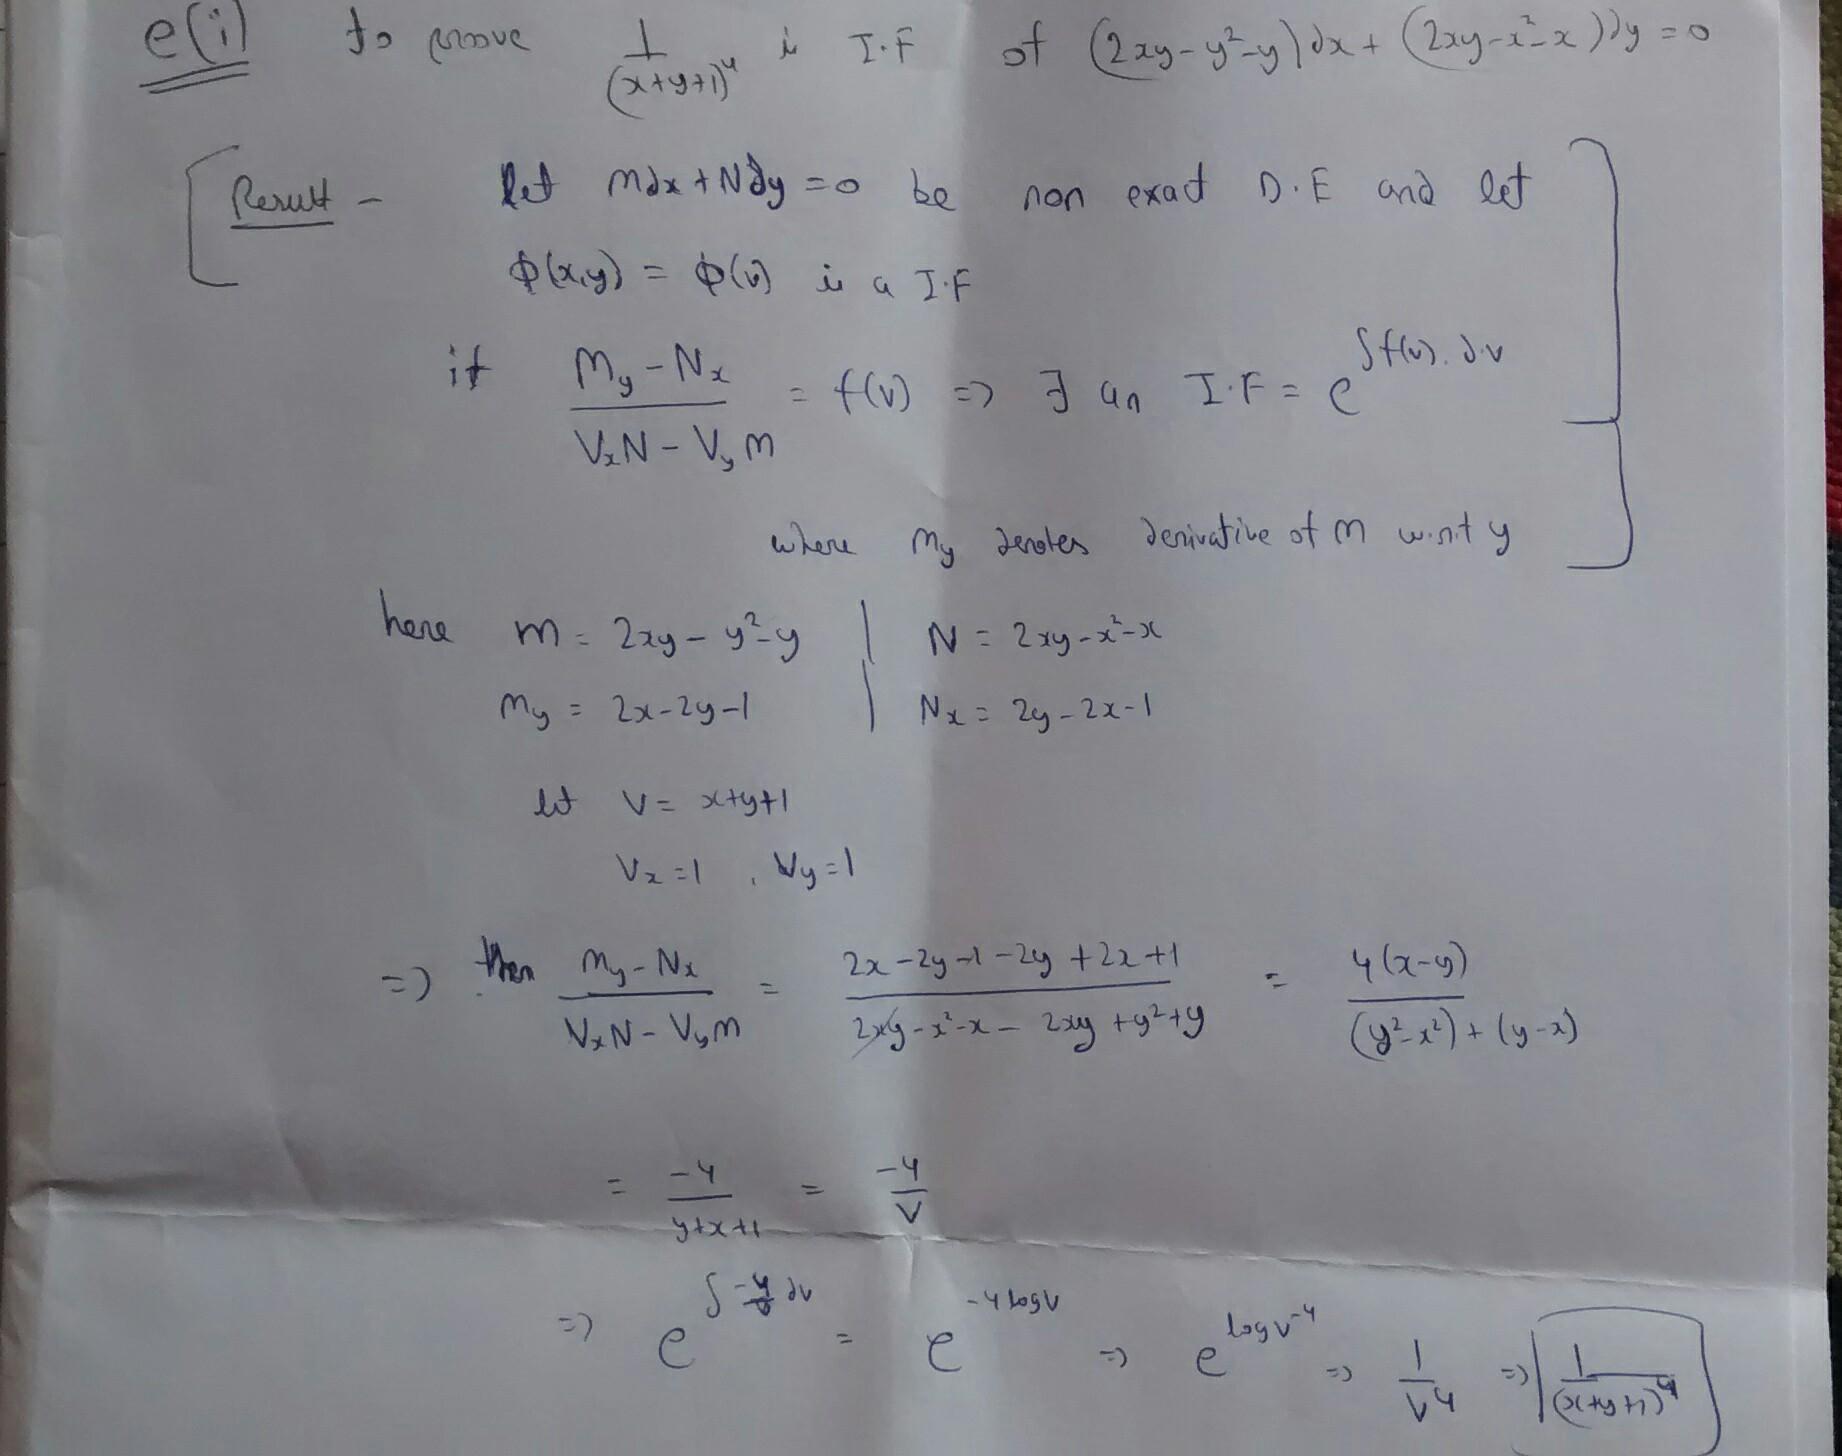 e(i) to prove 1/(x+y+1)⁴ is I.F of (2xy-y²-y)dx + (2xy-x²-x)dy = 0
Result - let mdx + Ndy = 0 be non exact D.E and let
ϕ(x,y) = ϕ(v) is a I.F
if (My - Nx)/(VxN - Vym) = f(v) => ∃ an I.F = e^∫f(v).dv
where my denotes derivative of m w.r.t y
here m = 2xy - y²-y | N = 2xy-x²-x
my = 2x-2y-1 | Nx = 2y-2x-1
let V = x+y+1
Vx=1, Vy=1
=> then (my-Nx)/(VxN - Vym) = (2x-2y-1-2y+2x+1)/(2xy-x²-x-2xy+y²+y) = 4(x-y)/((y²-x²)+(y-x))
= -4/(y+x+1) = -4/V
=> e^∫-4/v dv = e^-4logV => e^logv⁻⁴ => 1/V⁴ => 1/(x+y+1)⁴